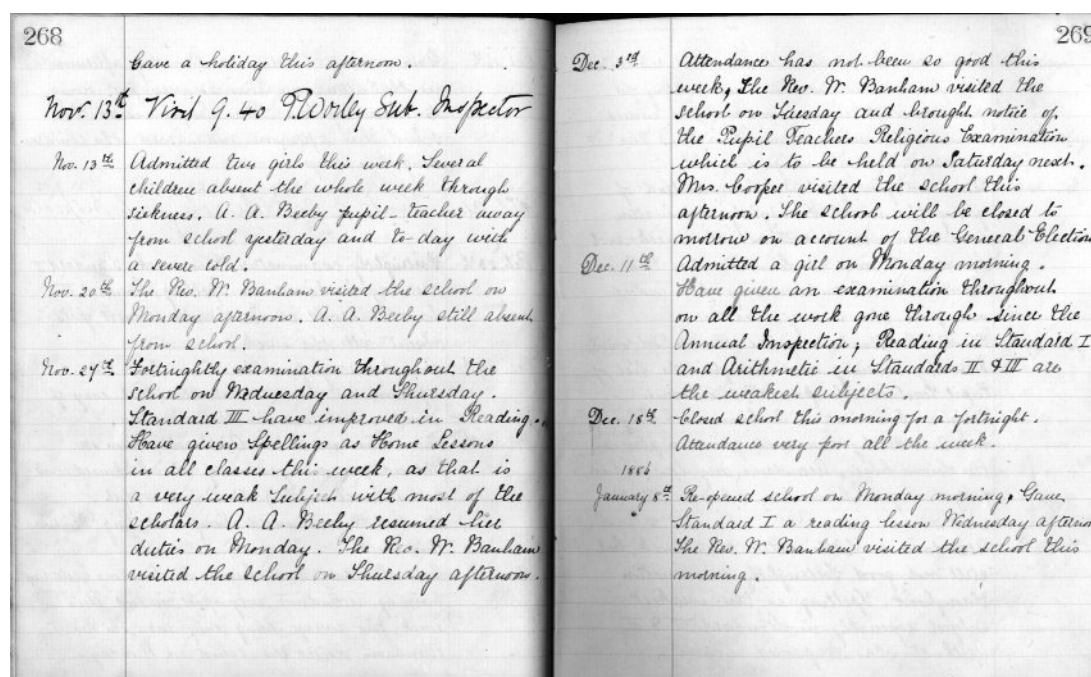 268
Gave a holiday this afternoon.
Nov. 13th Visit 9.40 Worley Sub. Inspector
Nov. 13th Admitted two girls this week. Several
children absent the whole week through
sickness. A. A. Beeby pupil-teacher away
from school yesterday and to-day with
a severe cold.
Nov. 20th The Rev. W. Banham visited the school on
Monday afternoon. A. A. Beeby still absent
from school.
Nov. 27th Fortnightly examination throughout the
school on Wednesday and Thursday.
Standard III have improved in Reading.
Have given Spellings as Home Lessons
in all classes this week, as that is
a very weak Subject with most of the
scholars. A. A. Beeby resumed her
duties on Monday. The Rev. W. Banham
visited the school on Thursday afternoon.
269
Dec. 3rd Attendance has not been so good this
week, The Rev. W. Banham visited the
school on Tuesday and brought notice of
the Pupil Teachers Religious Examination
which is to be held on Saturday next.
Mrs. Cooper visited the school this
afternoon. The school will be closed to
morrow on account of the General Election
Dec. 11th Admitted a girl on Monday morning.
Have given an examination throughout
on all the work gone through since the
Annual Inspection; Reading in Standard I
and Arithmetic in Standards II & III are
the weakest subjects.
Dec. 18th Closed school this morning for a fortnight.
Attendance very poor all the week.
1886
January 8th Re-opened school on Monday morning. Gave
Standard I a reading lesson Wednesday afternoo
The Rev. W. Banham visited the school this
morning.